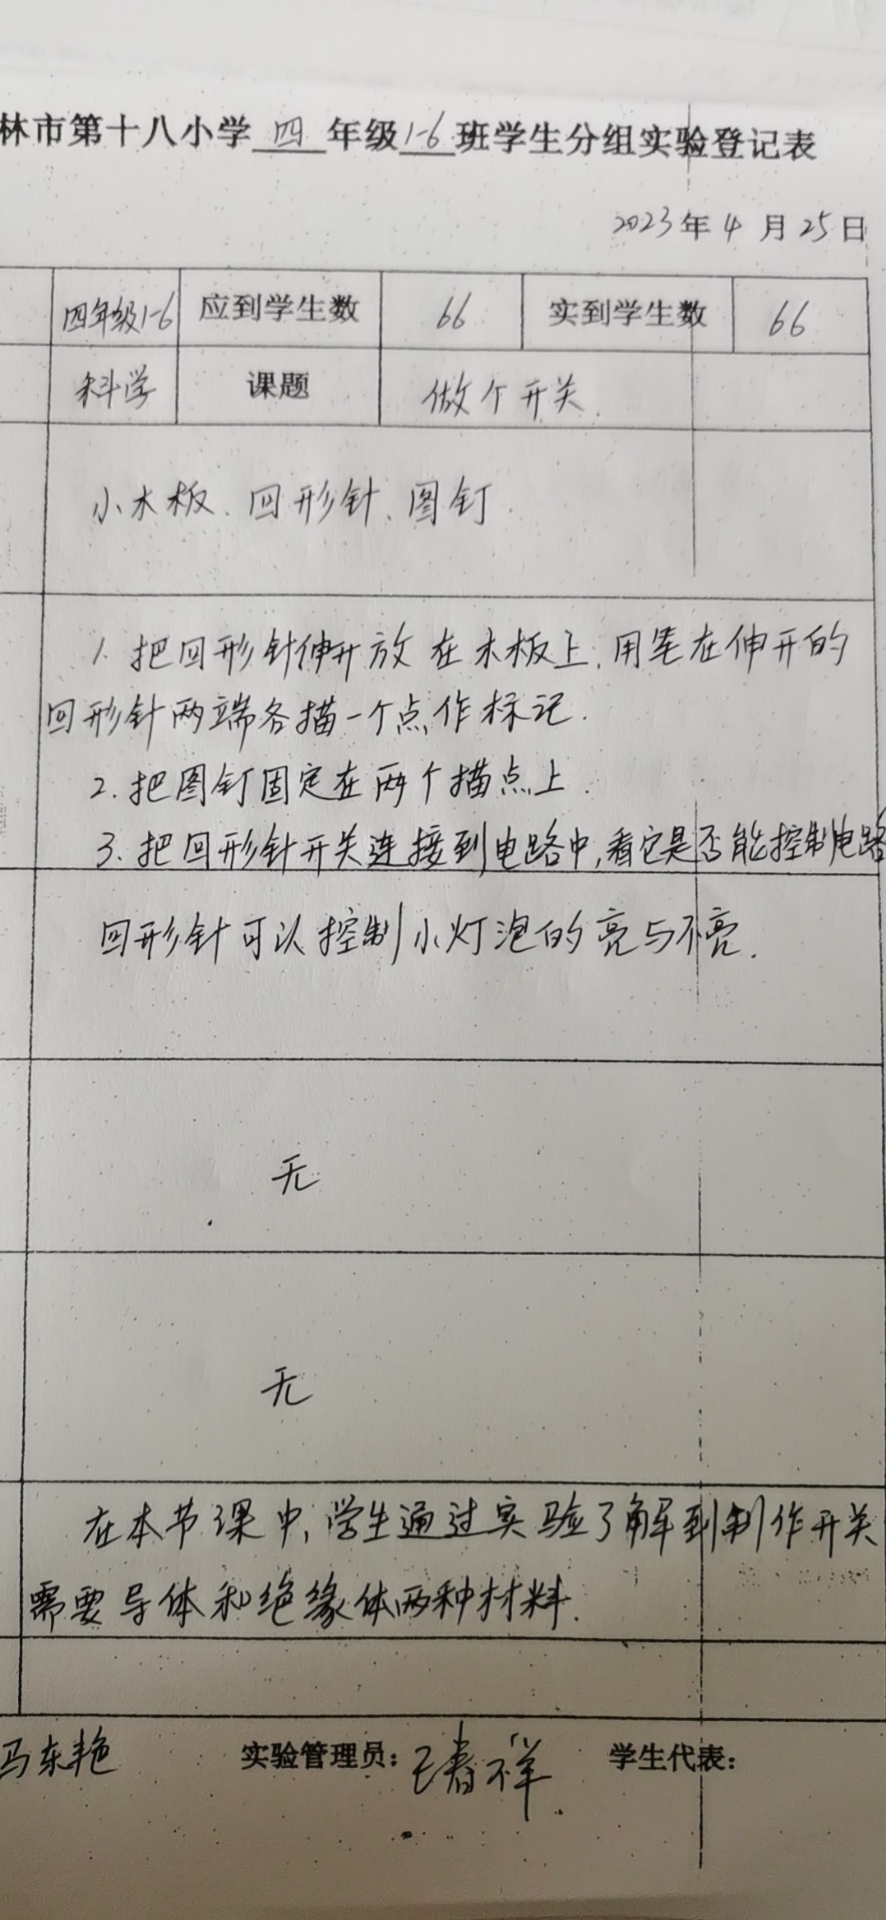 林市第十八小学 四 年级 1-6 班学生分组实验登记表
2023年 4 月 25日
四年级1-6 应到学生数 66 实到学生数 66
科学 课题 做个开关.
小木板、回形针、图钉.
1. 把回形针伸开放在木板上,用笔在伸开的
回形针两端各描一个点作标记.
2. 把图钉固定在两个描点上.
3. 把回形针开关连接到电路中,看它是否能控制电路
回形针可以控制小灯泡的亮与不亮.
无
无
在本节课中,学生通过实验了解到制作开关
需要导体和绝缘体两种材料.
马东艳 实验管理员: 王春祥 学生代表: